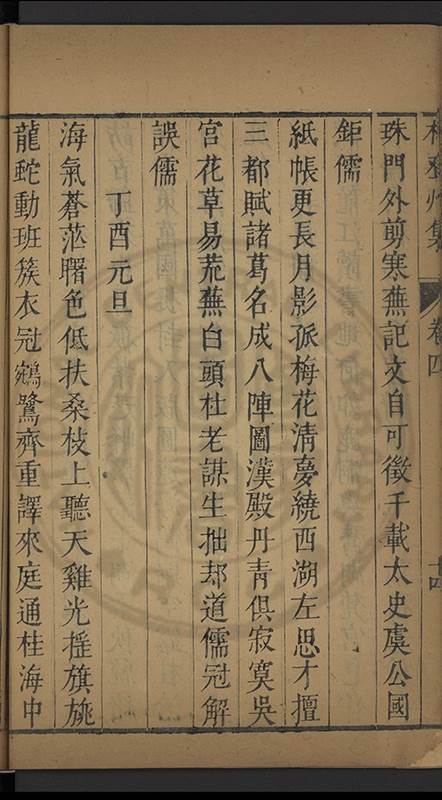 集 卷四
珠門外剪寒蕪記文自可徵千載太史虞公國
鉅儒
紙帳更長月影孤梅花清夢繞西湖左思才擅
三都賦諸葛名成八陣圖漢殿丹青俱寂寞吳
宮花草易荒蕪白頭杜老謀生拙却道儒冠解
誤儒
丁酉元旦
海氣蒼茫曙色低扶桑枝上聽天雞光搖旗旐
龍蛇動班簇衣冠鵷鷺齊重譯來庭通桂海中